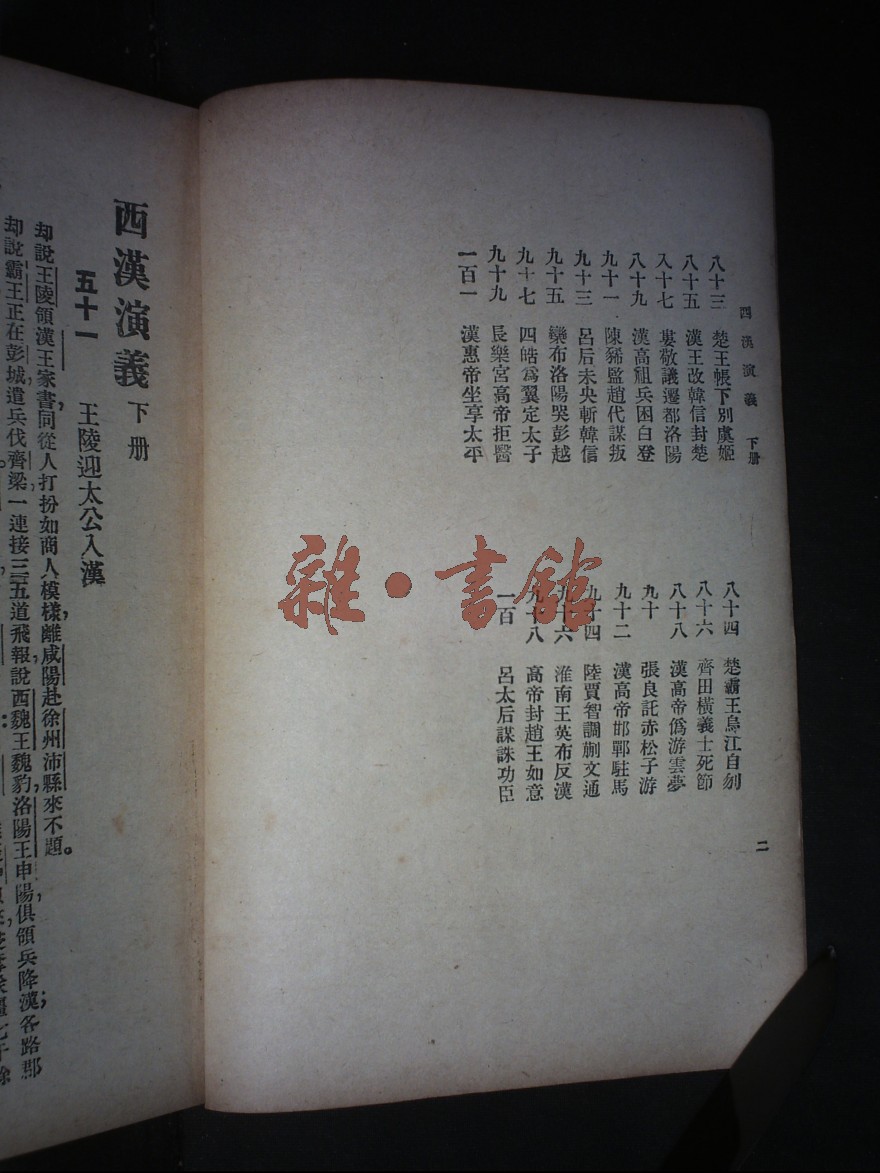 西漢演義 下册
八十三 楚王帳下別虞姬
八十四 楚霸王烏江自刎
八十五 漢王改韓信封楚
八十六 齊田橫義士死節
八十七 婁敬議遷都洛陽
八十八 漢高帝僞游雲夢
八十九 漢高祖兵困白登
九十 張良託赤松子游
九十一 陳豨監趙代謀叛
九十二 漢高帝邯鄲駐馬
九十三 呂后未央斬韓信
九十四 陸賈智調蒯文通
九十五 欒布洛陽哭彭越
九十六 淮南王英布反漢
九十七 四皓爲翼定太子
九十八 高帝封趙王如意
九十九 長樂宮高帝拒醫
一百 呂太后謀誅功臣
一百一 漢惠帝坐享太平
二
雜·書館
西漢演義 下册
五十一 王陵迎太公入漢
却說王陵領漢王家書,同從人打扮如商人模樣,離咸陽,赴徐州沛縣來不題。
却說霸王正在彭城遣兵伐齊梁,一連接三五道飛報說:西魏王魏豹,洛陽王申陽,俱領兵降漢;各路郡